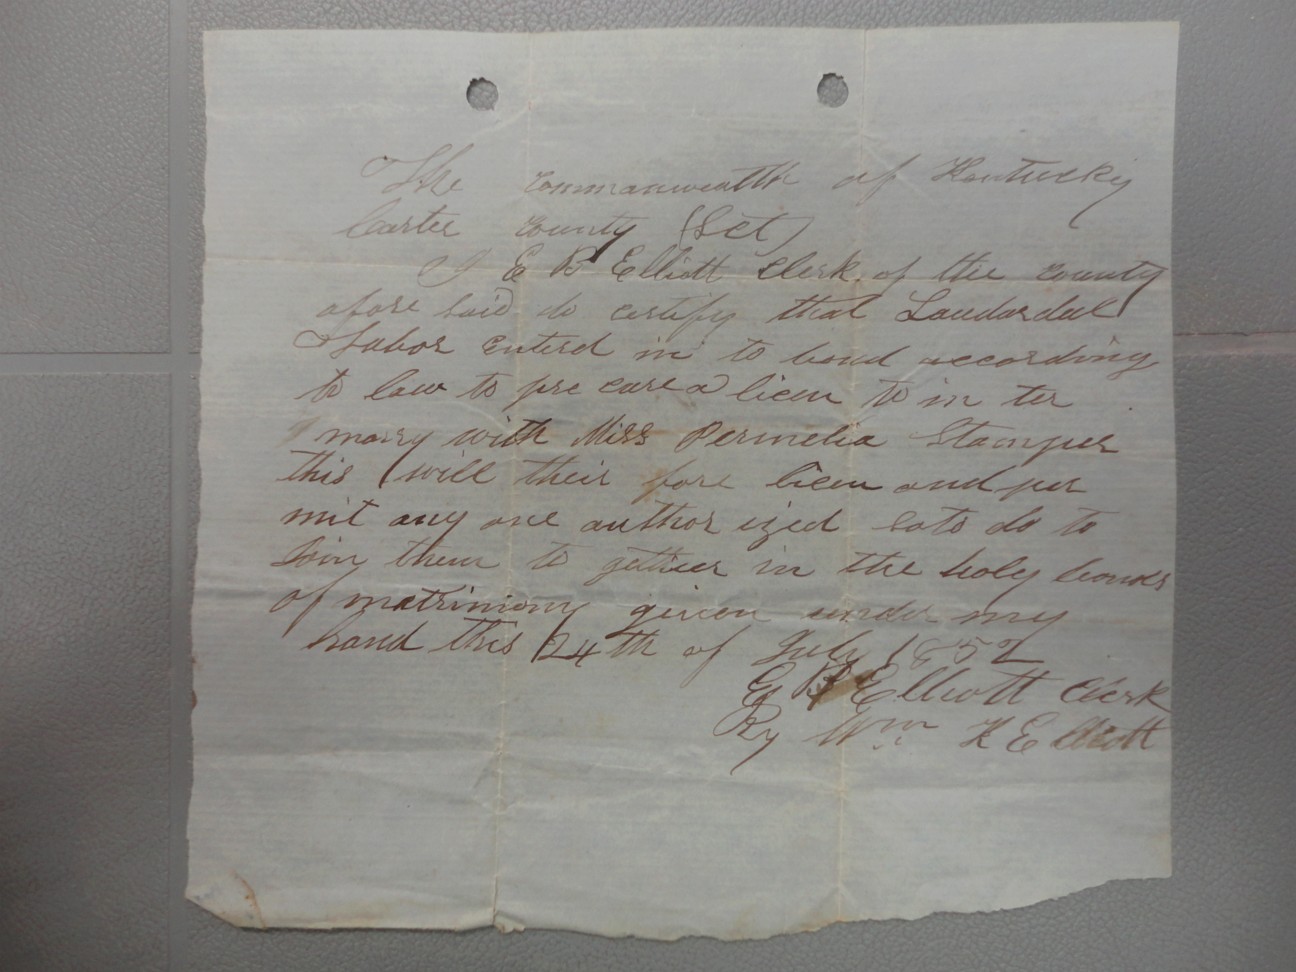 The commonwealth of Kentucky
Carter county (Sct)
I E B Elliott Clerk of the county
afore said do certify that Laudardal
Tabor enterd in to bond according
to law to pre cure a licen to in ter
marry with Miss Permelia Stamper
this will their fore licen and per
mit any one author ized so to do to
Join them to gether in the holy bonds
of matrimony given under my
hand this 24th of July 1852
E B Elliott Clerk
By Wm K Elliott